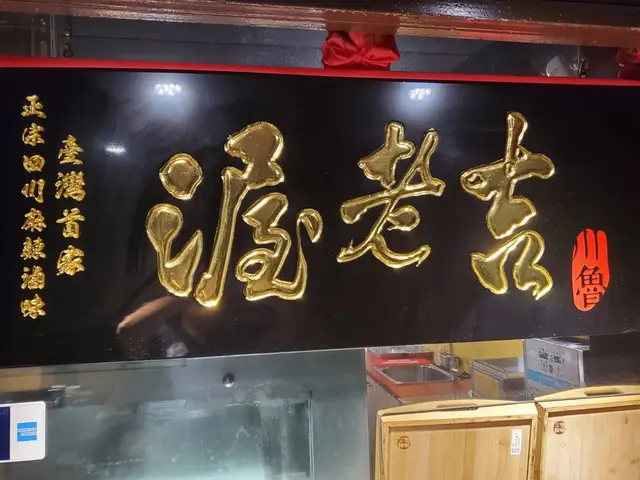 川魯
吉老渥
臺灣首家
正宗四川麻辣滷味